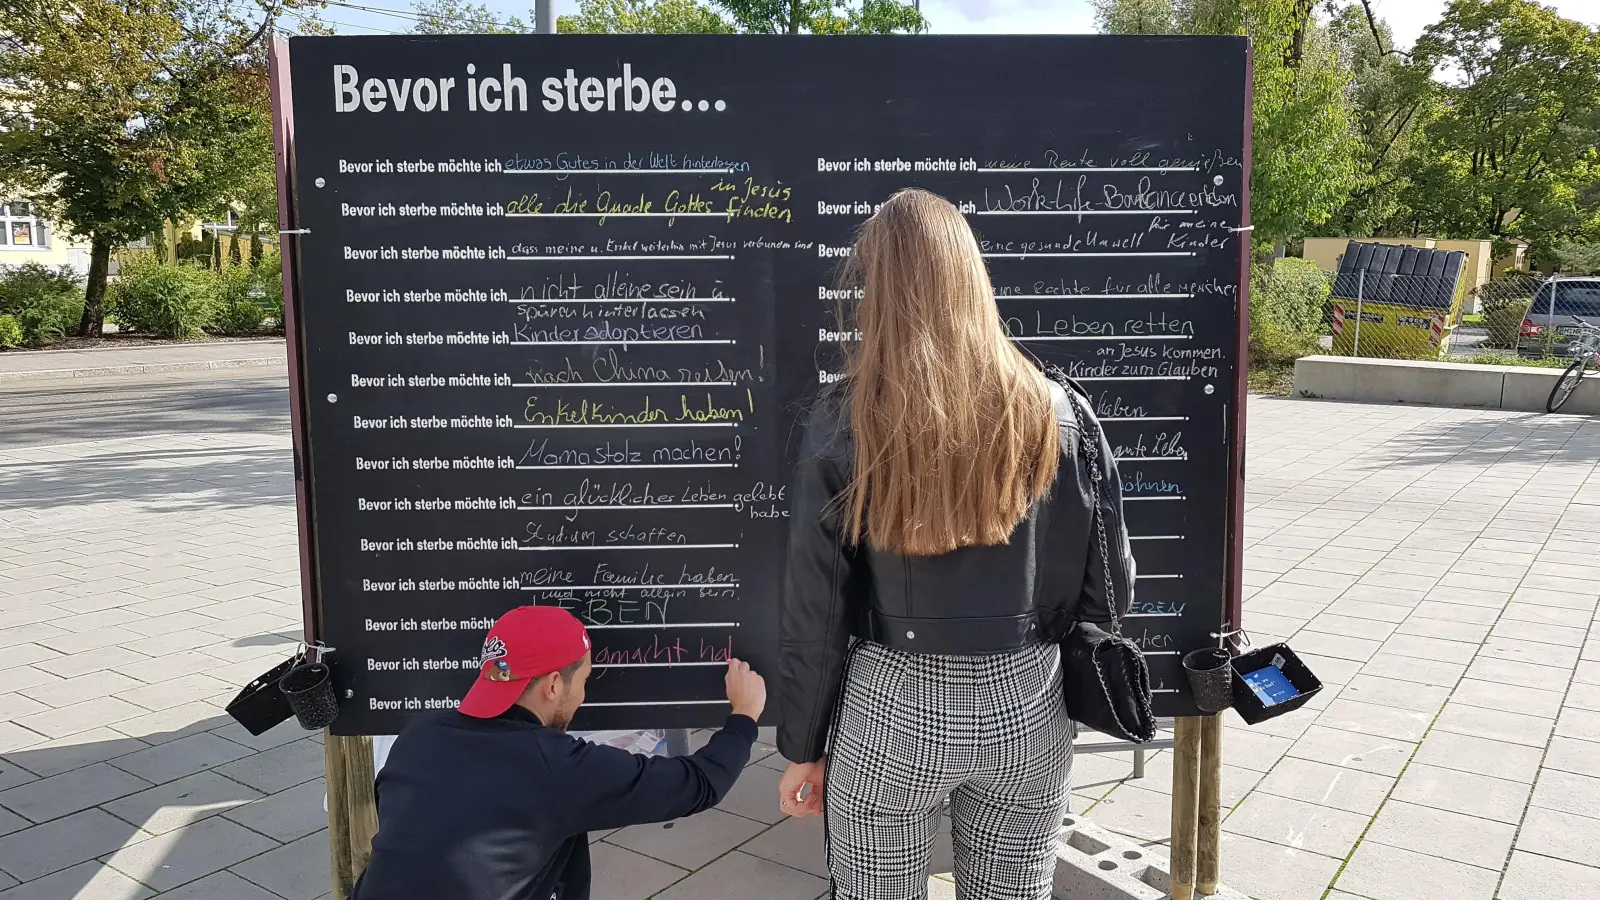 Bevor ich sterbe...
Bevor ich sterbe möchte ich etwas Gutes in der Welt hinterlassen
in Jesus
Bevor ich sterbe möchte ich alle die Gnade Gottes finden
Bevor ich sterbe möchte ich dass meine u. Enkel weiterhin mit Jesus verbunden sind
Bevor ich sterbe möchte ich nicht alleine sein u.
spuren hinterlassen
Bevor ich sterbe möchte ich Kinder adoptieren
Bevor ich sterbe möchte ich nach China reisen!
Bevor ich sterbe möchte ich Enkelkinder haben!
Bevor ich sterbe möchte ich Mama stolz machen!
Bevor ich sterbe möchte ich ein glückliches Leben gelebt
habe
Bevor ich sterbe möchte ich Studium schaffen
Bevor ich sterbe möchte ich meine Familie haben
und nicht allein sein.
Bevor ich sterbe möchte LEBEN
Bevor ich sterbe mö gmacht hab
Bevor ich sterbe
Bevor ich sterbe möchte ich meine Rente voll genießen
Bevor ich ich Work-Life-Balance erleben
für meine
Bevor eine gesunde Umwelt Kinder
Bevor ich Rechte für alle Menschen
Bevor Leben retten
an Jesus kommen.
Bevo Kinder zum Glauben
haben
gute Leben